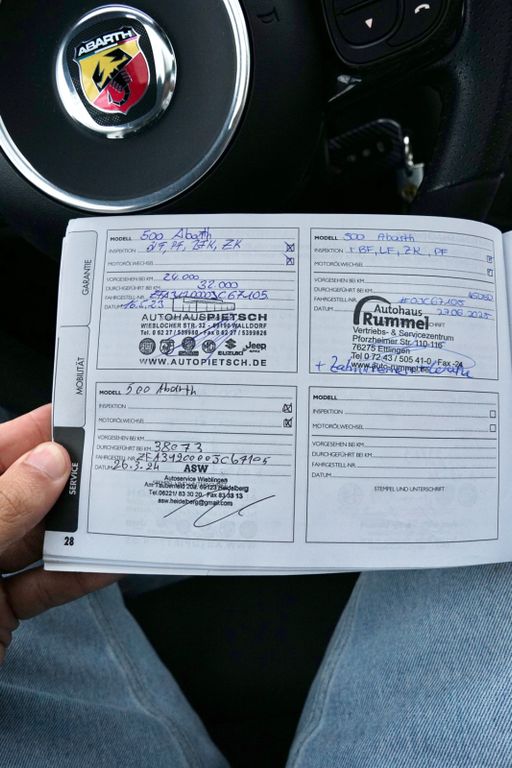 ABARTH
GARANTIE
MOBILITÄT
SERVICE
28
MODELL 500 Abarth
INSPEKTION BF, PF, ZK
MOTORÖLWECHSEL
VORGESEHEN BEI KM 24.000
DURCHGEFÜHRT BEI KM 32000
FAHRGESTELL-NR. ZFA3120000JC67105
DATUM 16.5.23
AUTOHAUSPIETSCH
WIEBLOCHER STR. 32 - 69190 WALLDORF
SUZUKI Jeep
WWW.AUTOPIETSCH.DE
MODELL 500 Abarth
INSPEKTION BF, LF, ZK, PF
MOTORÖLWECHSEL
VORGESEHEN BEI KM
DURCHGEFÜHRT BEI KM
FAHRGESTELL-NR. #0JC67105
DATUM 27.06.2025
Autohaus
Rummel
Vertriebs- & Servicezentrum
Pforzheimer Str. 110-116
76275 Ettlingen
Tel 0 72 43 / 505 41-0 · Fax -24
+ Zahnriemen
MODELL 500 Abarth
INSPEKTION
MOTORÖLWECHSEL
VORGESEHEN BEI KM
DURCHGEFÜHRT BEI KM 38073
FAHRGESTELL-NR. ZFA3120000JC67105
DATUM 26.3.24
ASW
Autoservice Wieblingen
Am Taubenfeld 20a, 69123 Heidelberg
Tel.06221/ 83 30 20, Fax 83 33 13
asw.heidelberg@gmail.com
MODELL
INSPEKTION
MOTORÖLWECHSEL
VORGESEHEN BEI KM
DURCHGEFÜHRT BEI KM
FAHRGESTELL-NR.
DATUM
STEMPEL UND UNTERSCHRIFT